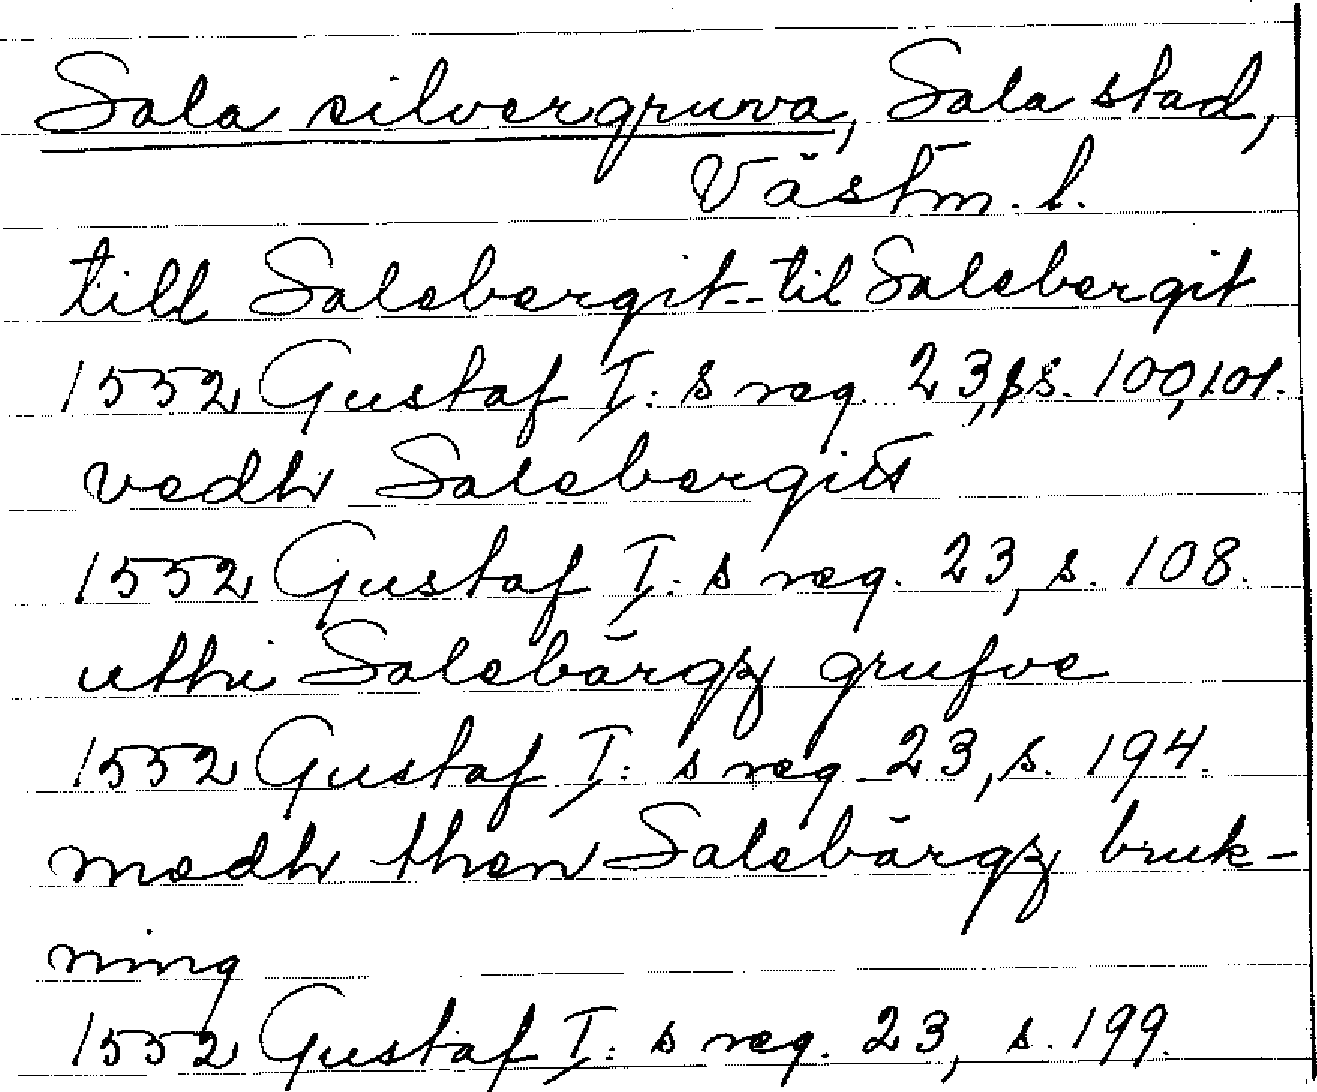 Sala silvergruva, Sala stad,
Västm. l.
till Salebergit - til Salebergit
1552 Gustaf I:s reg. 23, s. 100, 101.
vedh Salebergitt
1552 Gustaf I:s reg. 23, s. 108.
uthi Salebärgz grufve
1552 Gustaf I:s reg. 23, s. 194.
medh then Salebärgz bruk-
ning
1552 Gustaf I:s reg. 23, s. 199.